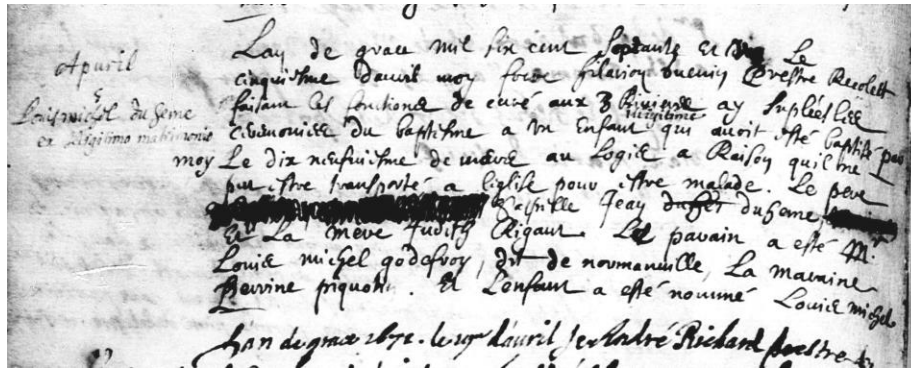 Apuril
Louis michel du heme
ex Illigitimo matrimonio
Lan de grace Mil six cent septante Et Le
cinquiesme dauril moy frere hilarion Guenin Prestre Recolett
faisant les fonctions de curé aux 3 Rivieres ay suplées Lée
legitime
ceremonies du baptisme a vn Enfant qui auoit esté baptisé par
moy Le dix neufuiesme de mars au logis a Raison quil ne
put estre transporté a leglise pour estre malade. Le pere
sapelle Jean duheme
Et La mere Judith Rigaut. Le parain a esté Mr.
Louis michel godefroy, dit de normanuille, La maraine
Perrine piquote. Et Lenfant a esté nommé Louis michel
Lan de grace 1671. le dauril Je André Richard prestre